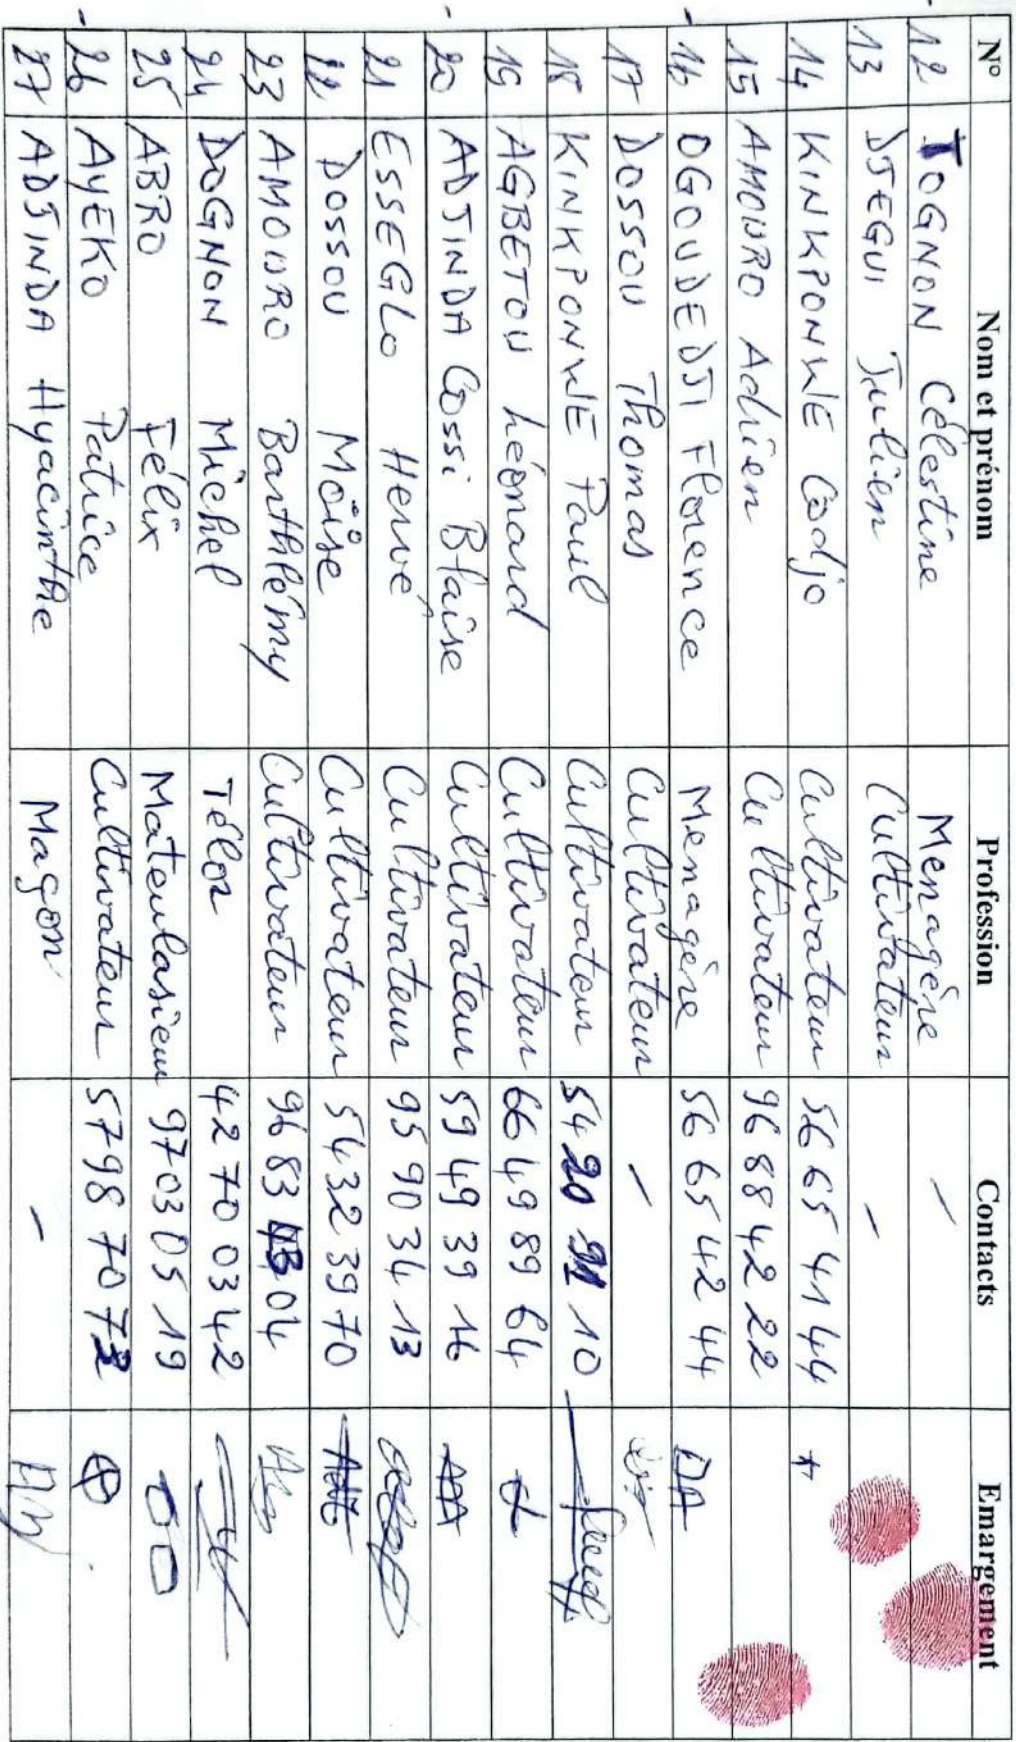 N° Nom et prénom Profession Contacts Emargement
12 TOGNON Célestine Menagère -
13 DJEGUI Julien Cultivateur -
14 KINKPONWE Codjo Cultivateur 56 65 41 44
15 AMOURO Adrien Cultivateur 96 88 42 22
16 OGOUDEDJI Florence Menagère 56 65 42 44 DA
17 DOSSOU Thomas Cultivateur -
18 KINKPONWE Paul Cultivateur 54 20 10
19 AGBETOU Léonard Cultivateur 66 49 89 64
20 ADJINDA Cossi Blaise Cultivateur 59 49 39 16 AAA
21 ESSEGLO Hervé Cultivateur 95 90 34 13
22 DOSSOU Moïse Cultivateur 54 32 39 70
23 AMOURO Barthlémy Cultivateur 96 83 13 04
24 DOGNON Michel Télor 42 70 03 42
25 ABRO Félix Mateulasieur 97 03 05 19
26 AYEKO Patrice Cultivateur 57 98 70 73
27 ADJINDA Hyacinthe Maçon -